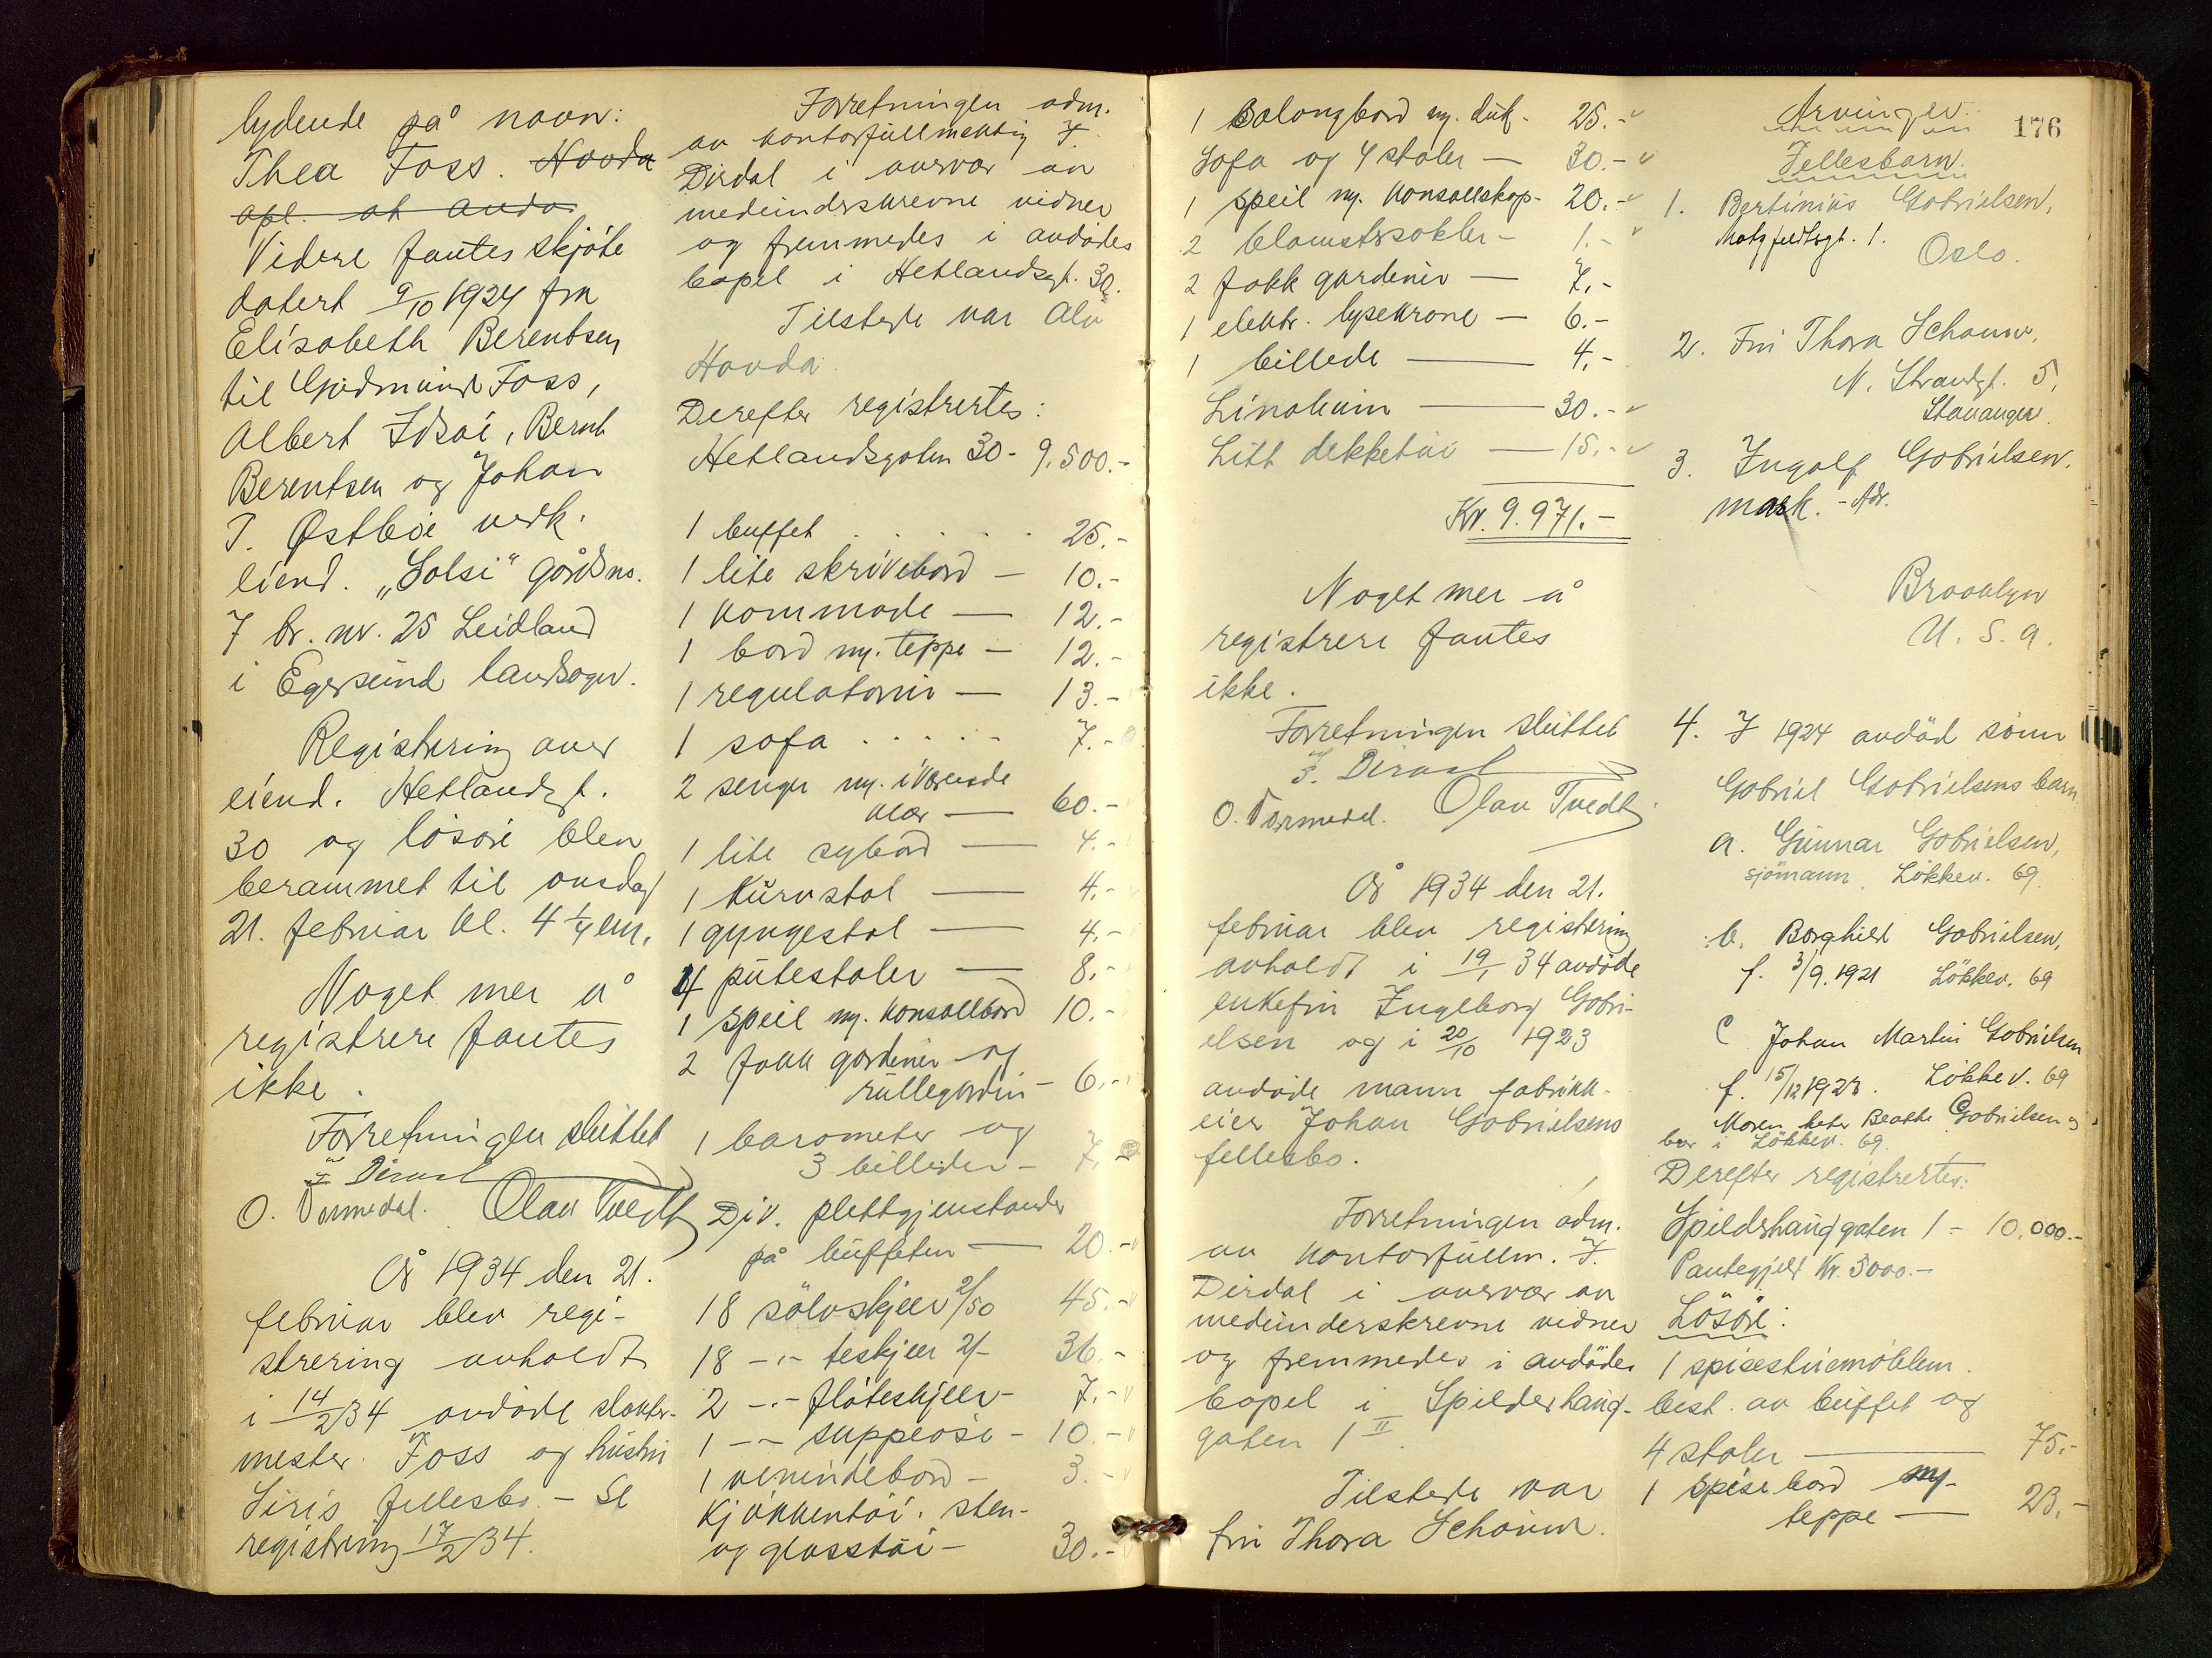 lydende på navn:
Thea Foss. Hovda
opl. at avdø
Videre fantes skjöte
datert 9/10 1924 fra
Elisabeth Berentsen
til Gudmund Foss,
Albert Idsöi, Bernt
Berentsen og Johan
T. Østbøe vedk.
eiend. „Solsi" gårdsno.
7 br. nr. 25 Leidland
i Egersund landsogn.
Registrering over
eiend. Hetlandsgt.
30 og lösöre blev
berammet til onsdag
21. februar kl. 4 ¼ em.
Noget mer å
registrere fantes
ikke.
Forretningen sluttet
I. Dirdal
O. Tormedal. Olav Tvedt
År 1934 den 21.
februar blev regi-
strering avholdt
i 14/2 34 avdöde slakter-
mester Foss og hustru
Siris fellesbo. - Se
registrering 17/2 34.
Forretningen adm.
av kontorfullmektig I.
Dirdal i nærvær av
medunderskrevne vidner
og fremmedes i avdödes
bopel i Hetlandsgt. 30.
Tilstede var Alv
Hovda.
Derefter registrertes:
Hetlandsgaten 30 - 9.500.-
1 buffet . . . . 25.-
1 lite skrivebord - 10.-
1 kommode - 12.-
1 bord m. teppe - 12.-
1 regulatorur - 13.-
1 sofa . . . . . 7.-
2 senger m. iværende
klær - 60.-
1 lite sybord - 4.-
1 kurvstol - 4.-
1 gyngestol - 4.-
4 putestoler - 8.-
1 speil m. konsollbord 10.-
2 fakk gardiner og
rullegardin - 6.-
1 barometer og
3 billeder - 7.-
Div. plettgjenstander
på buffeten - 20.-
18 sölvskjeer 2/50 45.-
18 -"- teskjeer 2/- 36.-
2 -"- flöteskjeer - 7.-
1 -"- suppeöse - 10.-
1 venindebord - 3.-
Kjökkentöi, sten-
og glasstöi - 30.-
1 salongbord m. duk - 25.-
Sofa og 4 stoler - 30.-
1 speil m. konsollskap - 20.-
2 blomstersokler - 1.-
2 fakk gardiner - 7.-
1 elektr. lysekrone - 6.-
1 billede - 4.-
Linoleum - 30.-
Litt dekketöi - 15.-
Kr. 9.971.-
Noget mer å
registrere fantes
ikke.
Forretningen sluttet
I. Dirdal
O. Tormedal. Olav Tvedt
År 1934 den 21.
februar blev registrering
avholdt i 19/1 34 avdöde
enkefru Ingeborg Gabri-
elsen og i 20/10 1923
avdöde mann fabrikk-
eier Johan Gabrielsens
fellesbo.
Forretningen adm.
av kontorfullm. I.
Dirdal i nærvær av
medunderskrevne vidner
og fremmedes i avdödes
bopel i Spilderhaug-
gaten 1 II.
Tilstede var
fru Thora Schauw.
176
Arvinger:
Fellesbarn.
1. Bertinius Gabrielsen,
Motzfeldtsgt. 1.
Oslo.
2. Fru Thora Schauw,
N. Strandgt. 5,
Stavanger.
3. Ingolf Gabrielsen.
mask. - Adr.
Brooklyn
U. S. A.
4. I 1924 avdöd sönn
Gabriel Gabrielsens barn
a. Gunnar Gabrielsen,
sjömann. Lökkev. 69.
b. Borghild Gabrielsen,
f. 3/9. 1921 Lökkev. 69
c Johan Martin Gabrielsen
f. 15/12 1923. Lökkev. 69
Moren heter Beathe Gabrielsen og
bor i Lökkev. 69.
Derefter registrertes:
Spilderhauggaten 1 = 10,000.-
Pantegjeld Kr. 3000.-
Lösöre:
1 spisestuemöblem.
best. av buffet og
4 stoler - 75.-
1 spisebord m.
teppe - 23.-